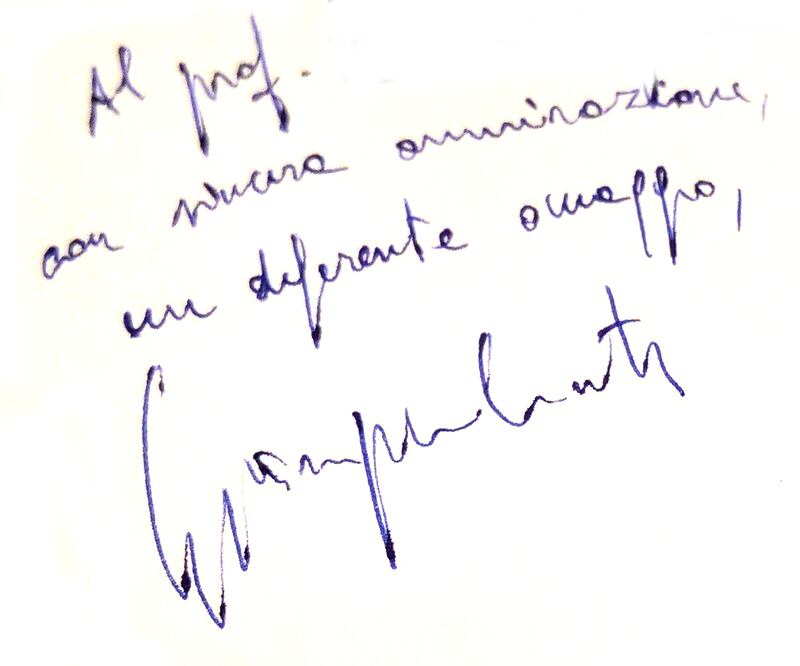 Al prof.
con sincera ammirazione,
un deferente omaggio,